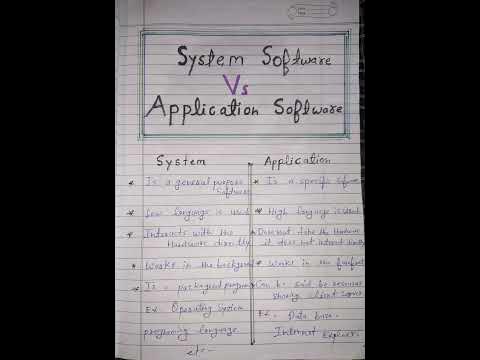 System Software
Vs
Application Software
System
Application
* Is a general purpose
Software
* Is a specific
* Low language is used
* High language is used
* Interacts with the
Hardware directly
the Hardware
it does not interact directly
* Works in the
* Works in the
* Is
Can be said
Ex. Operating System
programing language
etc.
Ex. Data base.
Internet Explorer.